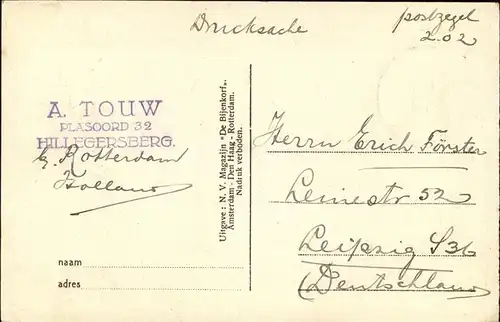 Drucksache
postzegel
202
A. TOUW
PLASOORD 32
HILLEGERSBERG.
by Rotterdam
Holland
Uitgave: N. V. Magazijn "De Bijenkorf"
Amsterdam - Den Haag - Rotterdam.
Nadruk verboden.
Herrn Erich Förster
Leinestr 52
Leipzig S36
(Deutschland
naam
adres